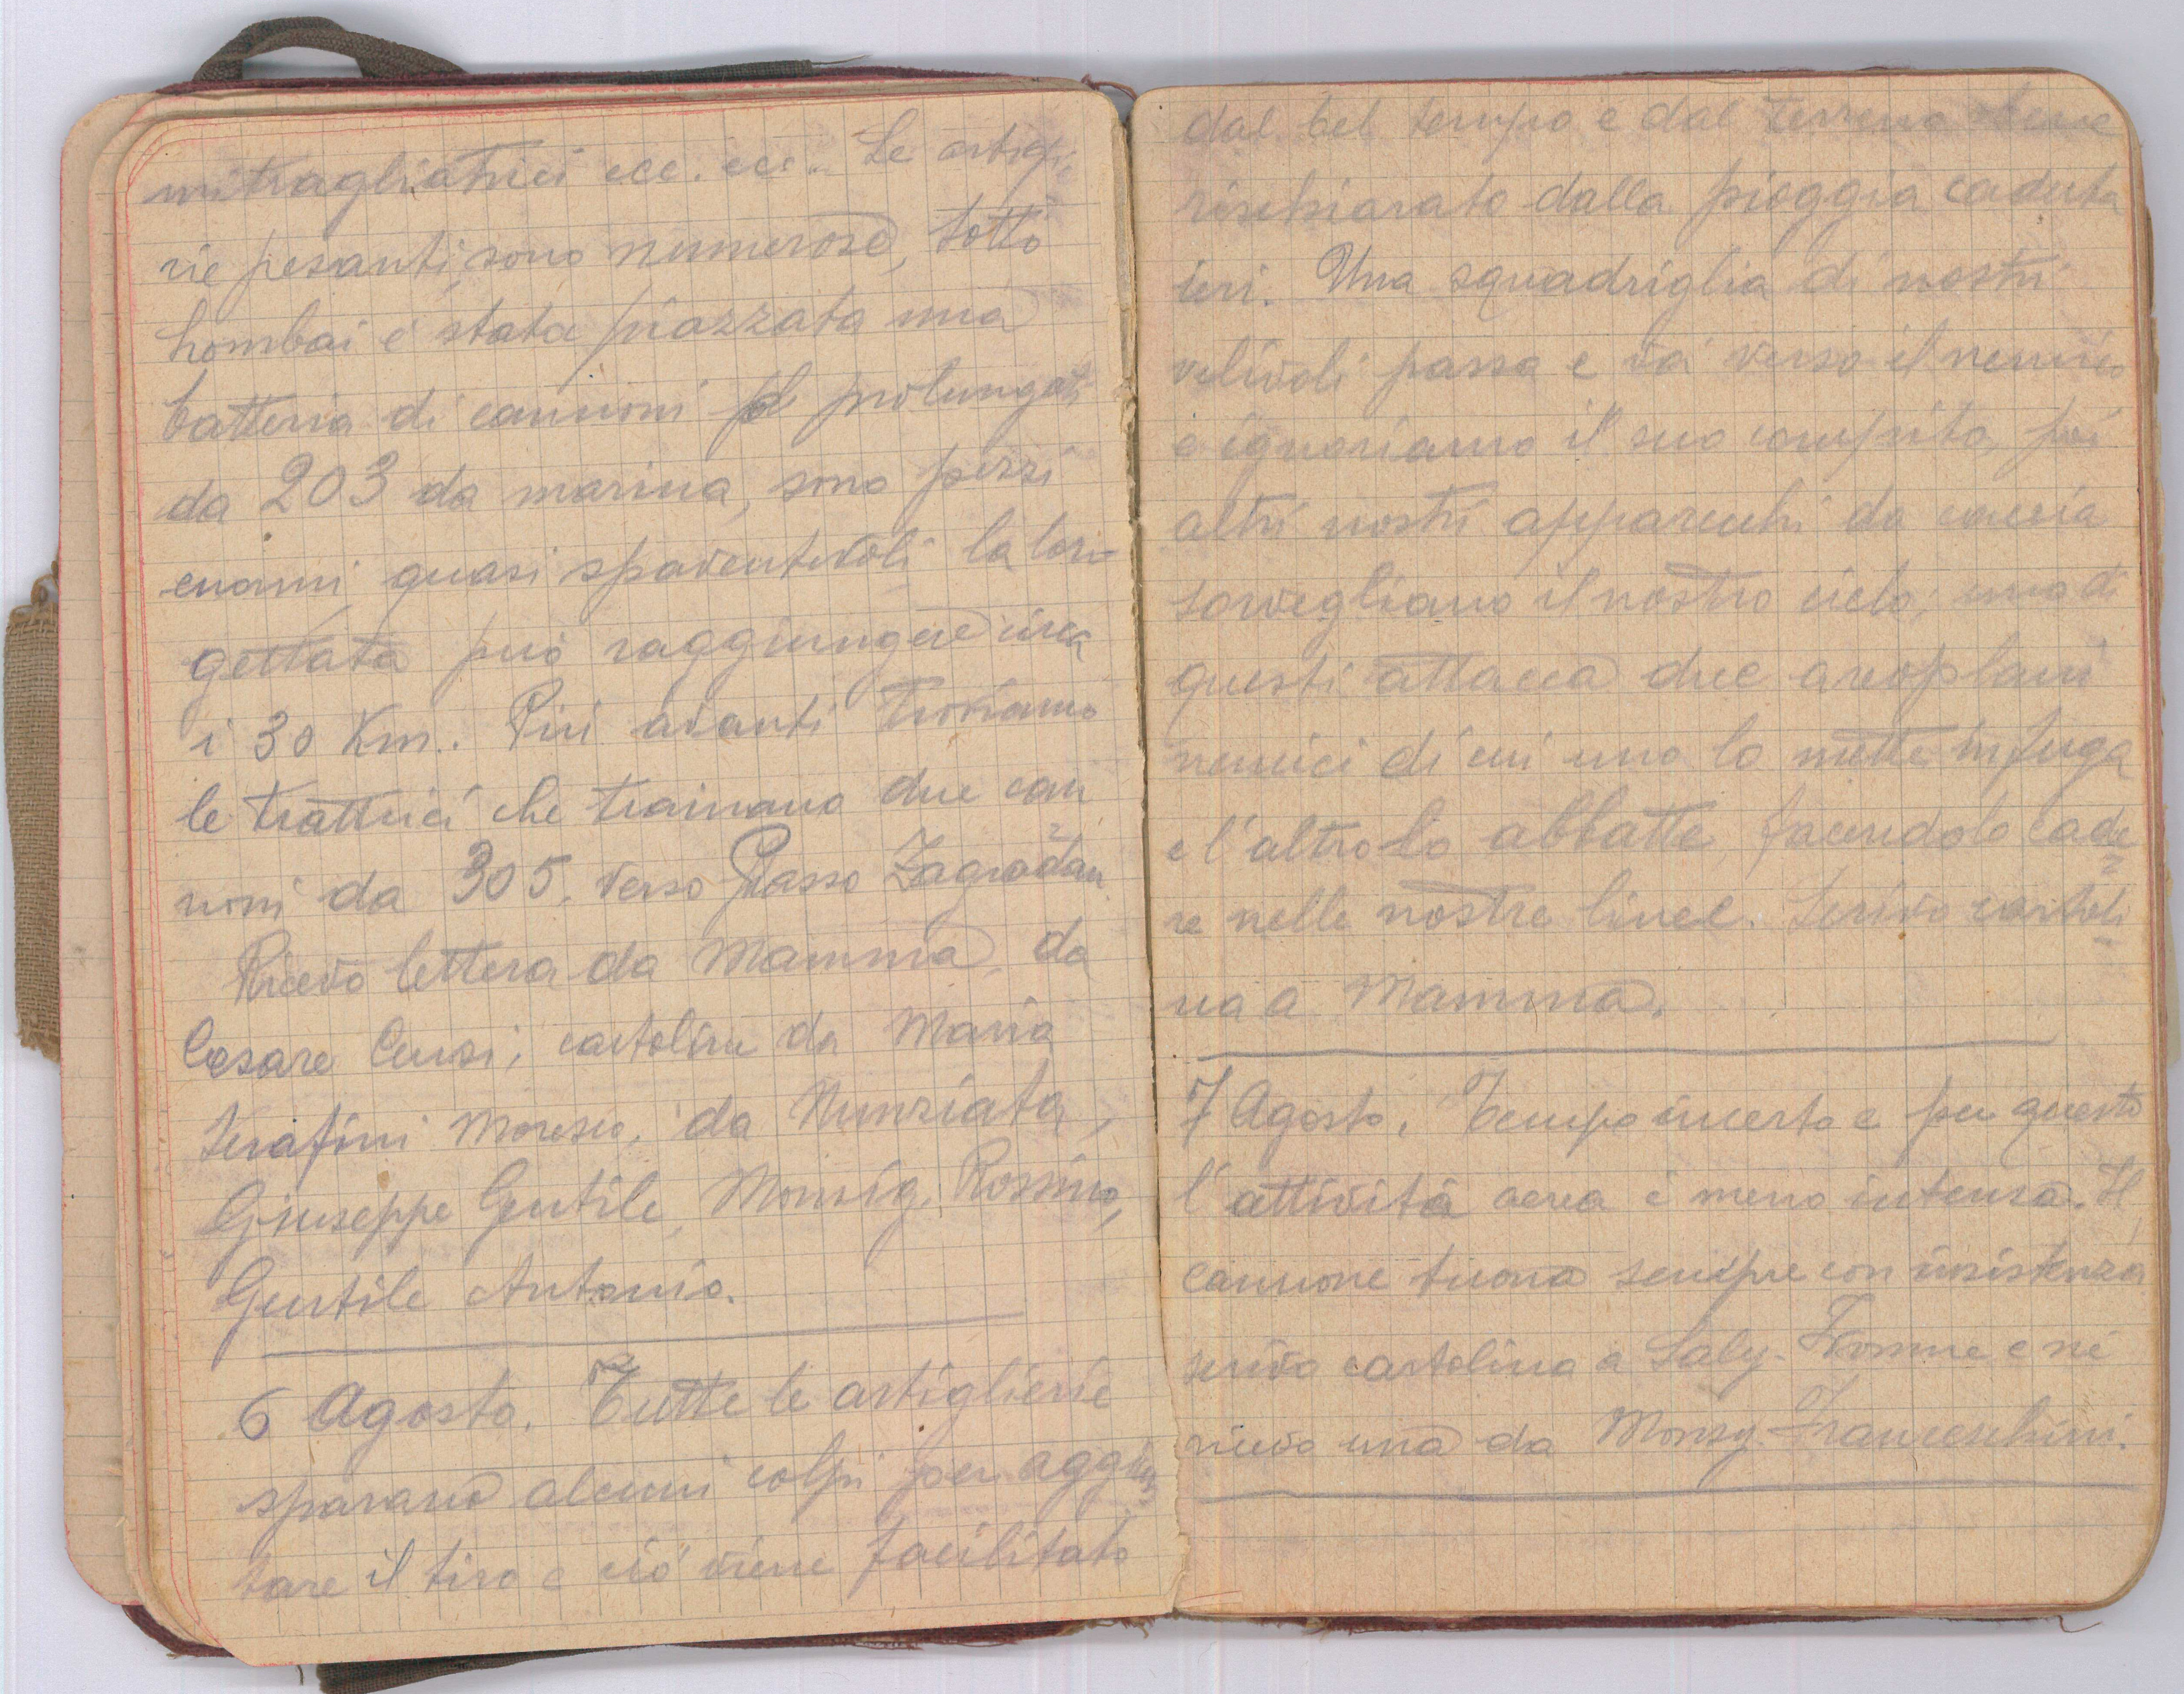 mitragliatrici ecc. ecc.. Le artiglie
rie pesanti, sono numerose, sotto
hombai é stata piazzata una
batteria di cannoni prolungati
da 203 da marina, sono pezzi
enormi quasi spaventevoli la lor
gettata può raggiungere circa
i 30 Km.. Più avanti troviamo
le trattrici che trainano due can
noni da 305, verso Passo Zagradan
Ricevo lettera da Mamma, da
Cesare Censi, cartoline da Maria
Serafini Moresco, da Nunziata,
Giuseppe Gentile, Monsig. Rossino,
Gentile Antonio.
6 Agosto. Tutte le artiglierie
sparano alcuni colpi per aggius
tare il tiro e ciò viene facilitato
dal bel tempo e dal terreno bene
rischiarato dalla pioggia caduta
ieri. Una squadriglia di nostri
velivoli passa e va verso il nemico
e ignoriamo il suo compito, poi
altri nostri apparecchi da caccia
sorvegliano il nostro cielo, uno di
questi attacca due areoplani
nemici di cui uno lo mette in fuga
e l'altro lo abbatte, facendolo cade
re nelle nostre linee. Scrivo cartoli
na a Mamma.
7 Agosto. Tempo incerto e per questo
l'attività aerea é meno intensa. Il
cannone tuona sempre con insistenza
scrivo cartolina a Saly e ne
ricevo una da Monsg. Franceschini.